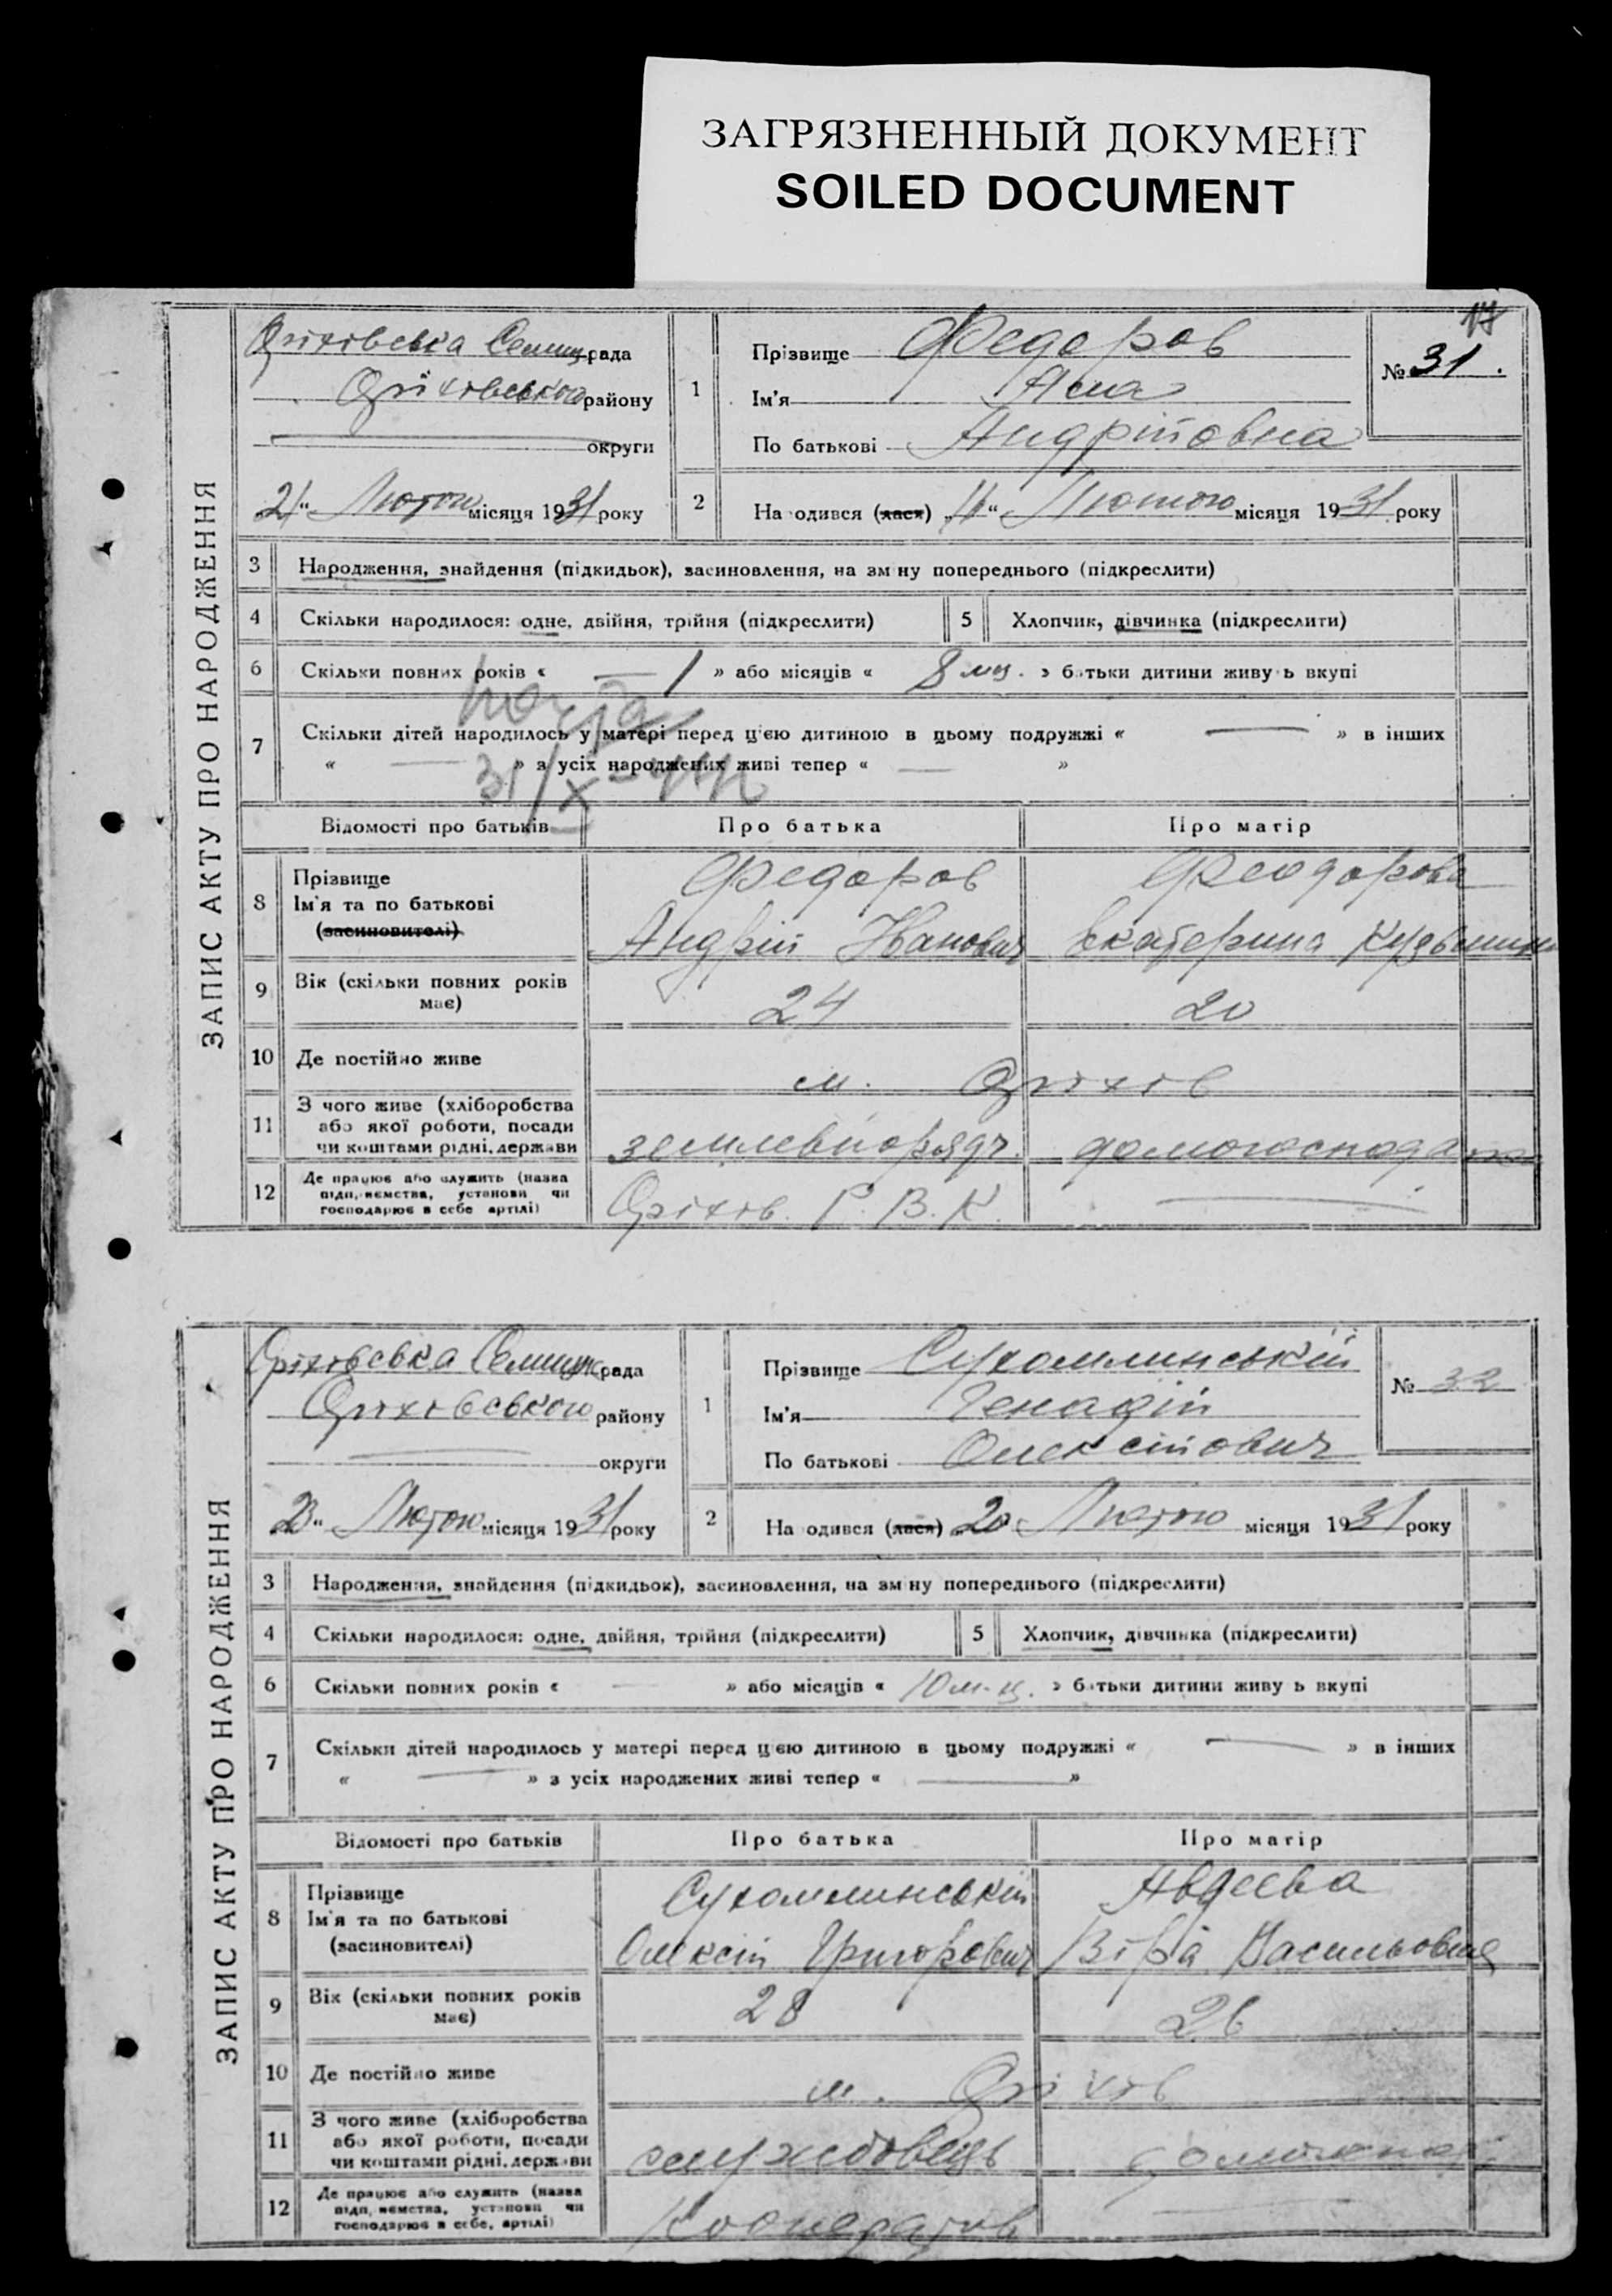 ЗАГРЯЗНЕННЫЙ ДОКУМЕНТ
SOILED DOCUMENT
ЗАПИС АКТУ ПРО НАРОДЖЕННЯ
Оріхівська Селищ. рада
Оріхівського району
округи
21 " Лютого місяця 1931 року
1
Прізвище Федоров
Ім'я
По батькові Андріївна
№ 31.
2
На одився (лася) " Лютого місяця 1931 року
3 Народження, знайдення (підкидьок), засиновлення, на зм ну попереднього (підкреслити)
4 Скільки народилося: одне, двійня, трійня (підкреслити)
5 Хлопчик, дівчинка (підкреслити)
6 Скільки повних років « — 1 » або місяців « 8 міс. » батьки дитини живу ь вкупі
7 Скільки дітей народилось у матері перед цією дитиною в цьому подружжі « — » в інших
« — » з усіх народжених живі тепер « — »
31/X
Відомості про батьків Про батька Про матір
8 Прізвище
Ім'я та по батькові
(засиновителі)
Федоров
Андрій Іванович
Феодорова
Екатерина
9 Вік (скільки повних років
має)
24 20
10 Де постійно живе м. Оріхів
11 З чого живе (хліборобства
або якої роботи, посади
чи коштами рідні, держави
землевпорядч.
12 Де працює або служить (назва
підприємства, установи чи
господарює в себе артілі)
Оріхів. Р. В. К. —
ЗАПИС АКТУ ПРО НАРОДЖЕННЯ
Оріхівська Селищ. рада
Оріхівського району
округи
" Лютого місяця 1931 року
1
Прізвище Сухомлинський
Ім'я Генадій
По батькові Олексійович
№ 32
2
На одився (лася) 20 Лютого місяця 1931 року
3 Народження, знайдення (підкидьок), засиновлення, на зм ну попереднього (підкреслити)
4 Скільки народилося: одне, двійня, трійня (підкреслити)
5 Хлопчик, дівчинка (підкреслити)
6 Скільки повних років « — » або місяців « 10 м-ц. » батьки дитини живу ь вкупі
7 Скільки дітей народилось у матері перед цією дитиною в цьому подружжі « — » в інших
« — » з усіх народжених живі тепер « — »
Відомості про батьків Про батька Про матір
8 Прізвище
Ім'я та по батькові
(засиновителі)
Сухомлинський
Олексій Григорович
Авдеєва
Віра Васильовна
9 Вік (скільки повних років
має)
28 26
10 Де постійно живе м. Оріхів
11 З чого живе (хліборобства
або якої роботи, посади
чи коштами рідні, держави
службовець
12 Де працює або служить (назва
підприємства, установи чи
господарює в себе, артілі)